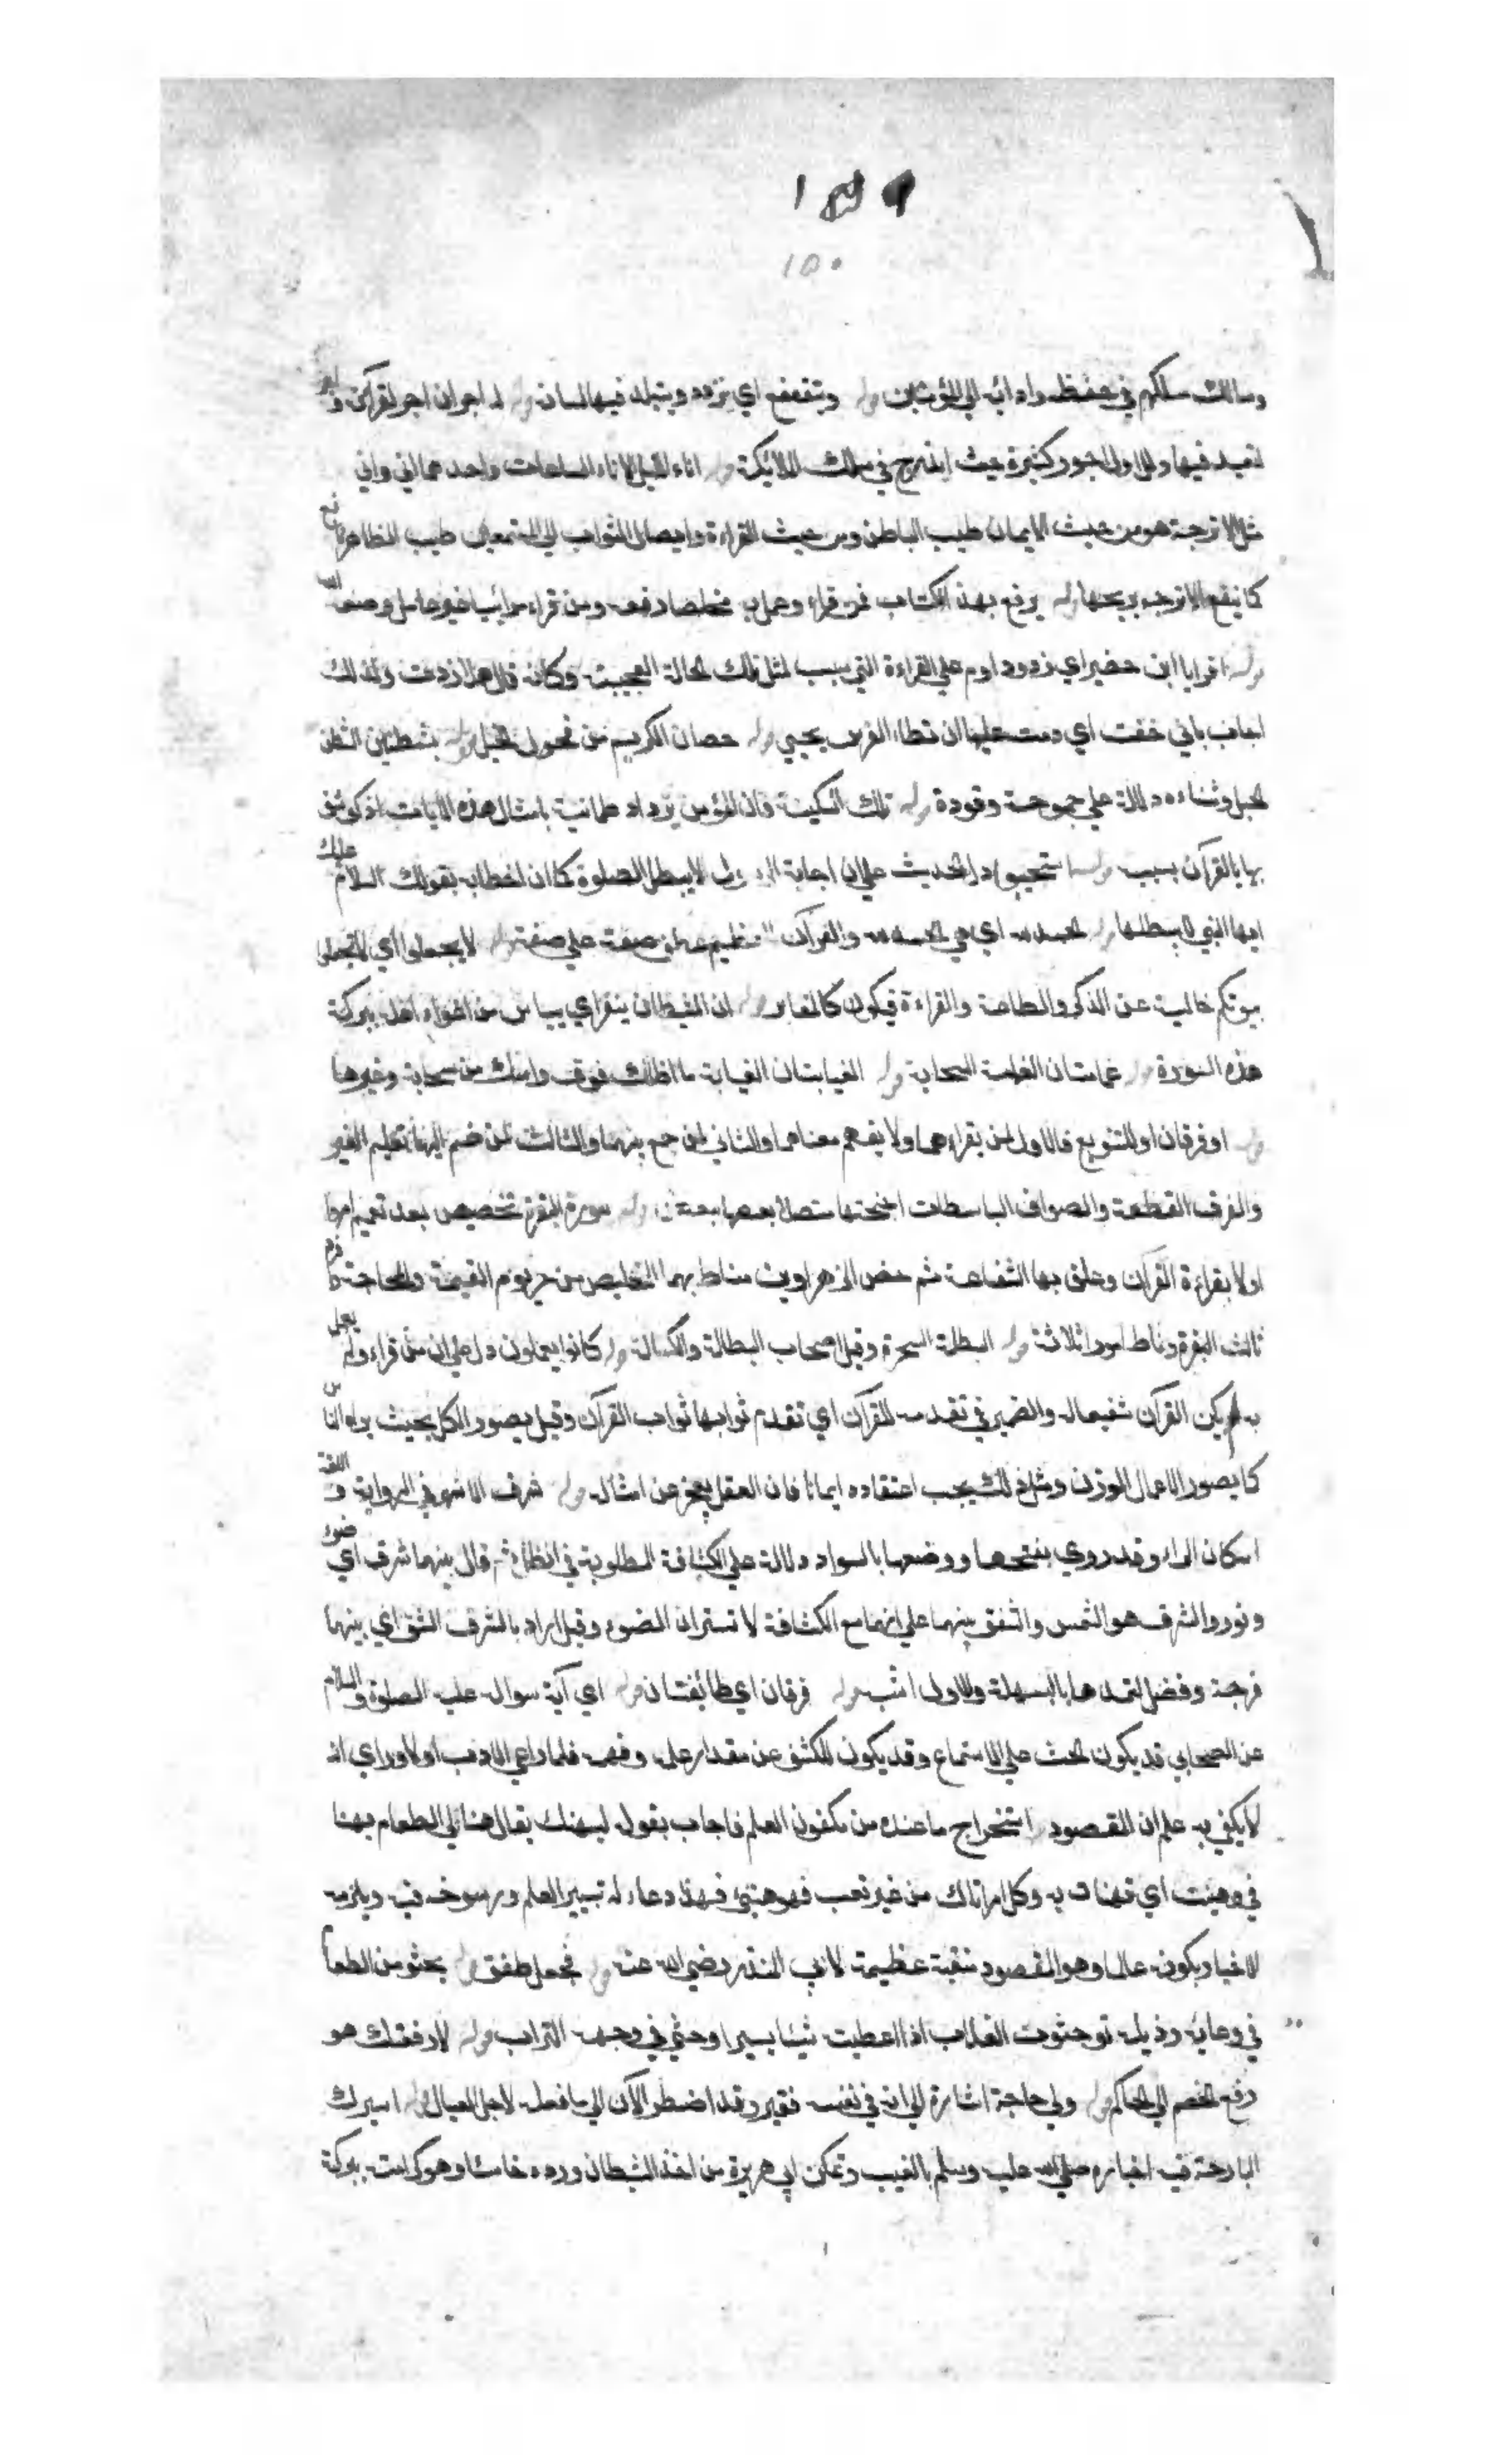 ١٤٩
١٥٠
وسالك مسلكهم في حفظه وادائه الي المؤمنين قوله ويتتعتع اي يتردد ويتبلد فيها لسانه قوله له اجران اجر لقرآنه و اجر
لتعبه فيها وللاول اجور كثيرة حيث اندرج في سلك الملائكة قوله اناء الليل الاناء الساعات واحدهما اني واني
مثل الاترجة هو من حيث الايمان طيب الباطن ومن حيث القراءة وايصال الثواب الي المستمعين طيب الظاهر
كما ينفع الاترجه بريحها قوله يرفع بهذا الكتاب فمن قراء وعمل به مخلصا رفعه ومن قراء مرائيا غير عامل وضعه الله
قوله اقرا يا ابن حضير اي زد ودم علي القراءة التي سبب لمثل تلك الحالة العجيبة وكانه قال هلا زدت ولذلك
اجاب باني خفت اي دمت عليها ان تطاء الفرس يحيي قوله حصان الكريم من فحول الخيل قوله بشطنين الشطن
الحبل وثناءه دلالة علي جموحته وقوده قوله تلك السكينة فان المؤمن يزداد طمانية بامثال هذه الايات اذ كوشف
بها بالقرآن بسبب قوله استجيبوا دل الحديث علي ان اجابة الرسول لا يبطل الصلوة كما ان الخطاب بقولك السلام عليك
ايها النبي لا يبطلها قوله الحمد لله اي هي الحمد لله والقرآن العظيم عطف صفة علي صفة قوله لا يجعلوا اي لا تجعلوا
بيوتكم خالية عن الذكر والطاعة والقراءة فيكون كالمقابر قوله ان الشيطان ينفر اي يياس من اغواء اهله ببركة
هذه السورة قوله غمامتان الغمامة السحابة قوله الغيابتان الغيابة ما اظلك فوق راسك من سحابة وغيرها
قوله او فرقان او للتنويع فالاول لمن يقراءهما ولا يفهم معناهما والثاني لمن جمع بينهما والثالث لمن ضم اليهما تعليم الغير
والفرق القطعة والصواف الباسطات اجنحتها متصلا بعضها ببعض قوله سورة البقرة تخصيص بعد تعميم امر
اولا بقراءة القرآن وعلق بها الشفاعة ثم خص الزهراوين مناط بهما التخليص من حر يوم القيمة والمحاجة
ثالث البقرة وناط امورا ثلاثة قوله البطلة السحرة وقيل اصحاب البطالة والكسالة قوله كانوا يعملون دل علي ان من قراء ولم يعمل
به لم يكن القرآن شفيعا له والضمير في تقدمه للقرآن اي تقدم ثوابها ثواب القرآن وقيل يصور الكل بحيث يراه الناس
كما يصور الاعمال للوزن ومثل ذلك يجب اعتقاده ايمانا فان العقل يعجز عن امثاله قوله شرق الاشهر في الرواية و اللغة
اسكان الراء وقد روي بفتحها ووصفها بالسواد دلالة علي الكثافة المطلوبة في الظل ثم قال بينهما شرق اي ضوء
ونور والشرق هو الشمس والشفق بينهما علي انهما مع الكثافة لا تستران الضوء وقيل اراد بالشرق الشق اي بينهما
فرجة وفضل لتمدهما بالبسملة والاول اشبه قوله فرقان اي طائفتان قوله اي آية سواله عليه الصلوة والسلام
عن الصحابي قد يكون للحث علي الاستماع وقد يكون للكشف عن مقدار علمه وفهمه فلما راعي الادب اولا وراي انه
لا يكتفي به علم ان المقصود استخراج ما عنده من مكنون العلم فاجاب بقوله ليهنك يقال هناني الطعام يهنا
في وهنئت اي تهنات به وكل امر اتاك من غير تعب فهو هنيئ فهذا دعاء له بتيسير العلم ورسوخه فيه ويلزمه
الاخبار بكونه عالما وهو المقصود منقبة عظيمة لابي المنذر رضي الله عنه قوله فجعل طفق قوله يحثو من الطعام
في وعائه وذيله نحو حثوت الغلاب اذا اعطيته شيئا يسيرا وحثي في وجهه التراب قوله لارفعنك هو
رفع الخصم الي الحاكم قوله ولي حاجة اشارة الي انه في نفسه فقير وقد اضطر الآن الي ما فعله لاجل العيال قوله اسيرك
البارحة فيه اخباره صلي الله عليه وسلم بالغيب وتمكن ابي هريرة من اخذ الشيطان ورده خاسئا وهو كرامته ببركة